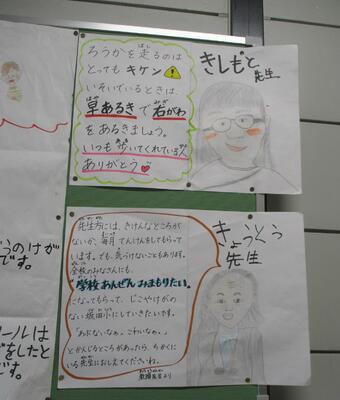 ろうかを走るのは
とっても キケン
いそいでいるときは、
早あるきで右がわ
をあるきましょう。
いつも歩いてくれている人
ありがとう
きしもと
先生
先生方には、きけんなところが
ないか、毎月 てんけんをしてもらって
います。でも、気づけないこともあります。
全校のみなさんにも、
"学校あんぜんみまもりたい"
になってもらって、じこやけがの
ない坂田小にしていきたいです。
「あぶないなぁ。こわいなぁ。」
とかんじるところがあったら、ちかくに
いる先生におしえてくださいね。
教頭先生より
きょうとう
先生
うのけが
です。
ールは
をしたと
です。